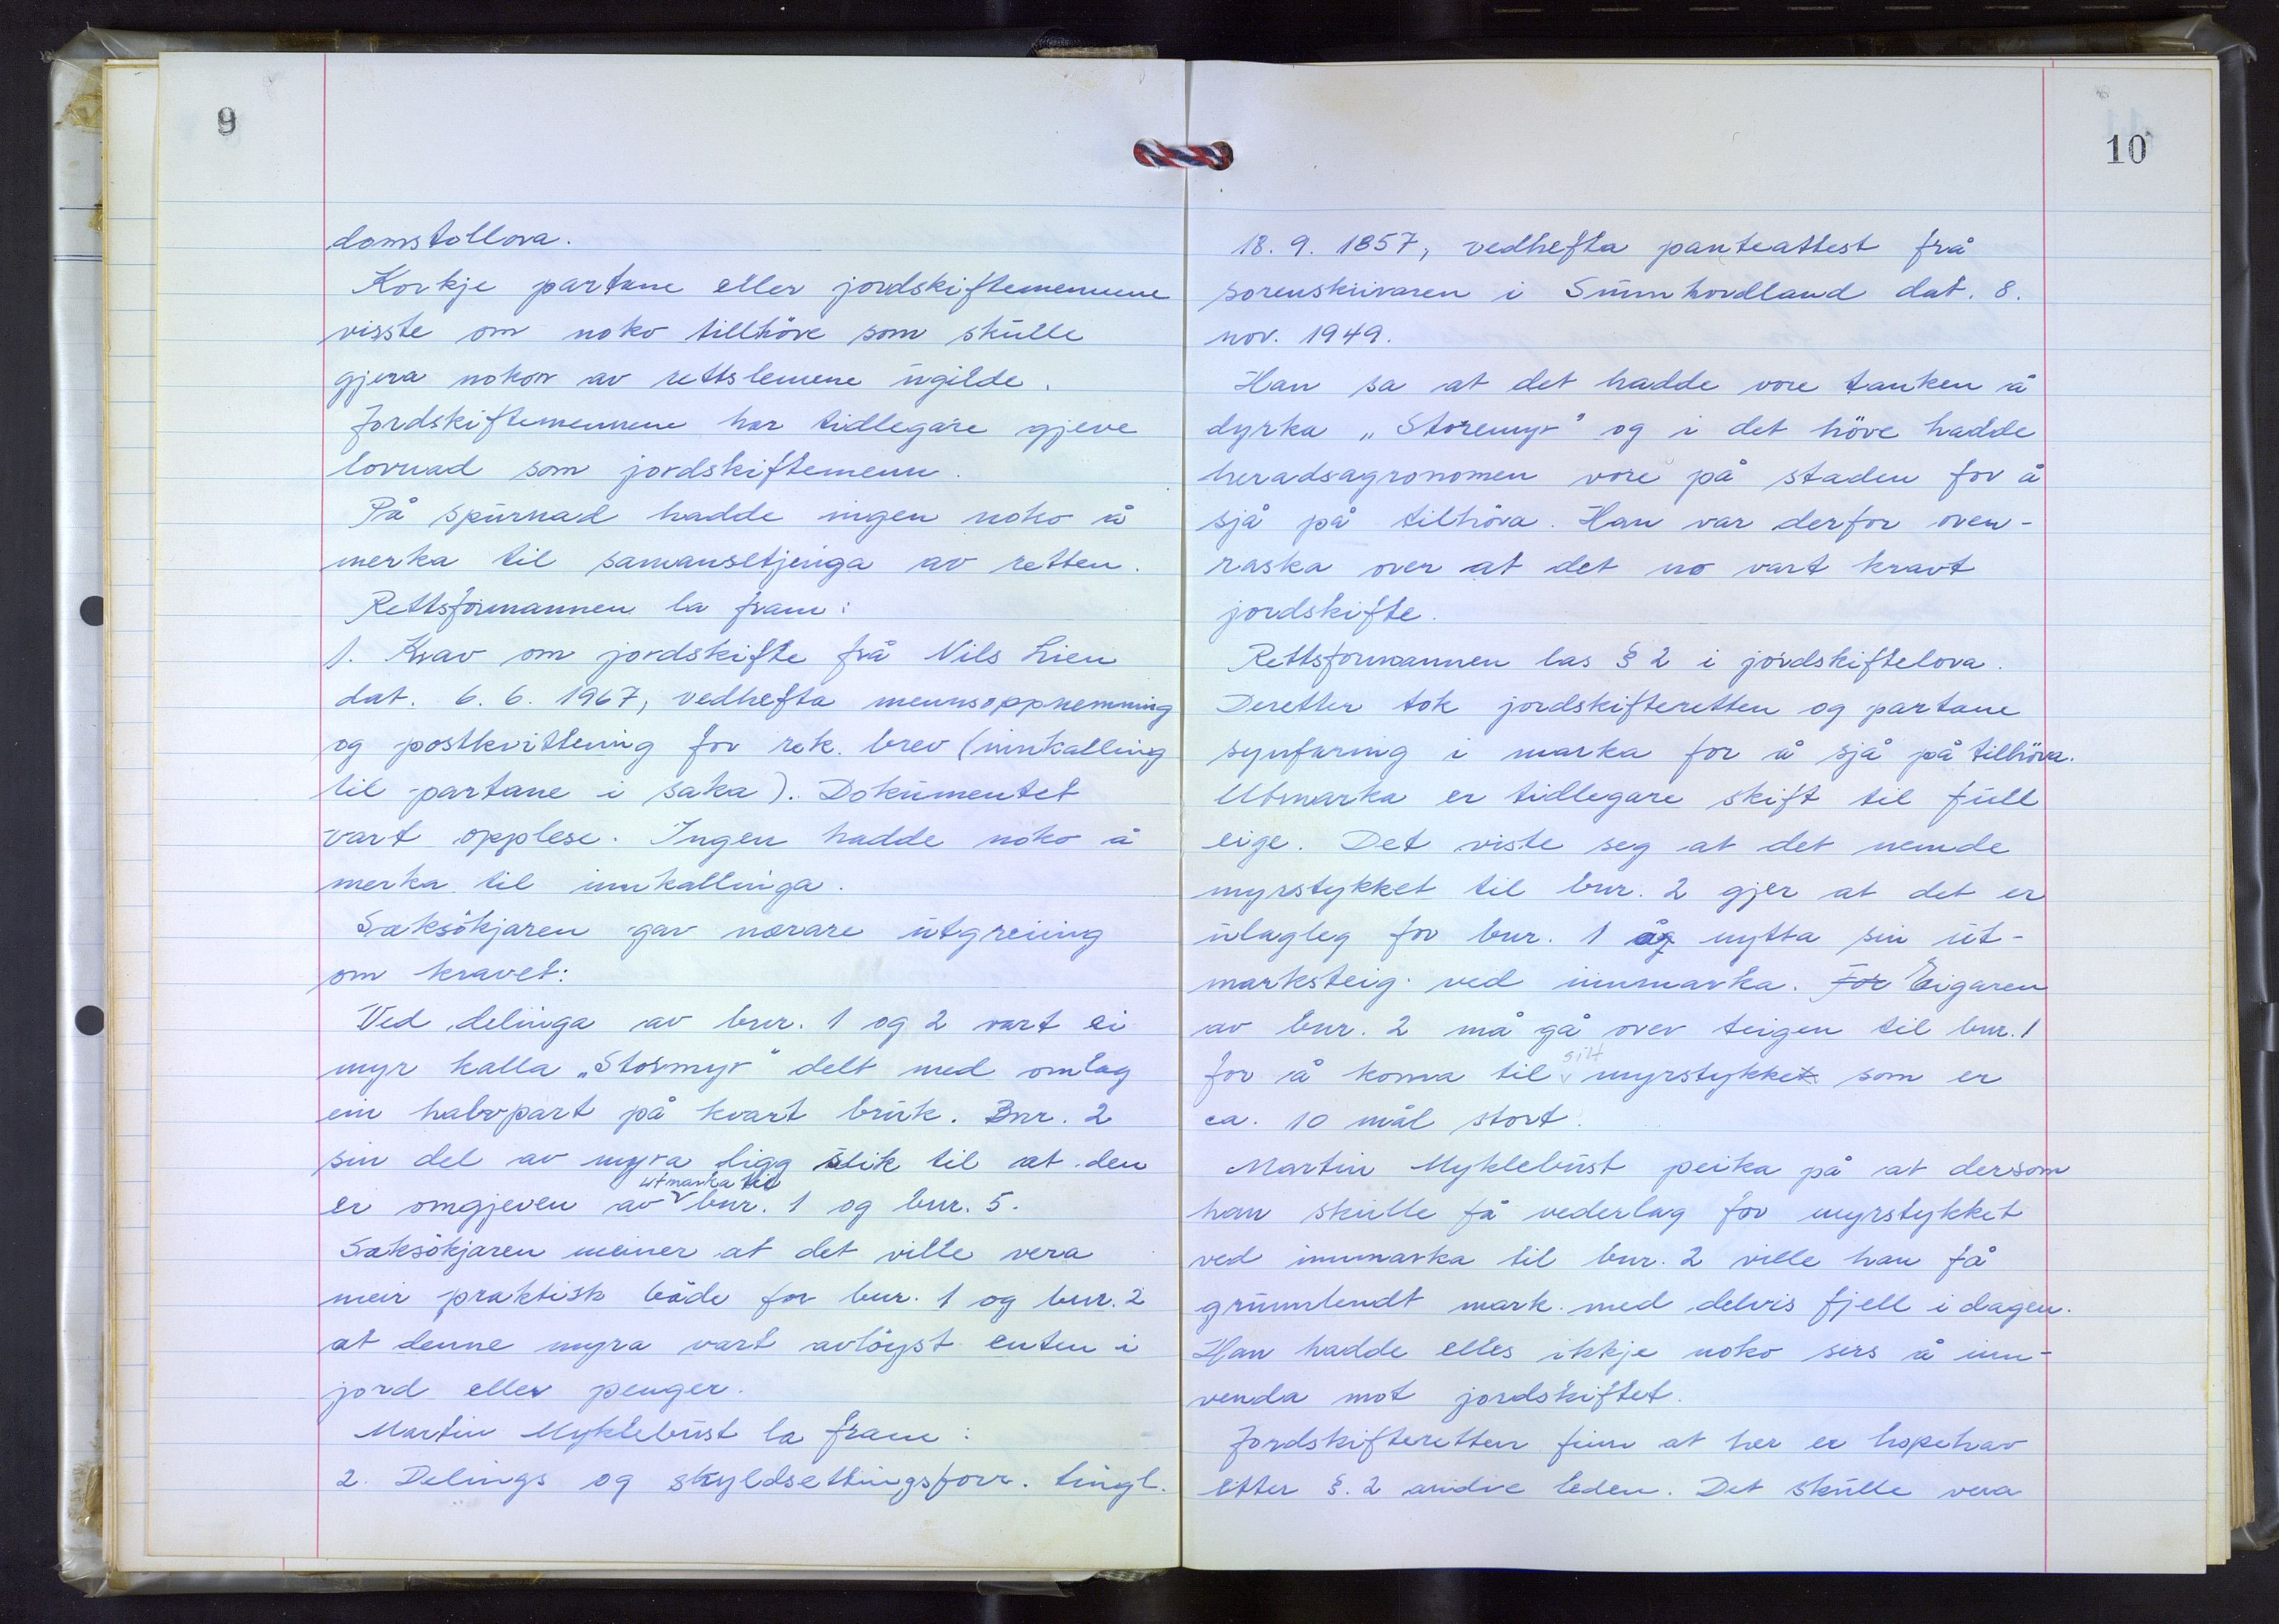 9
domstollova.
Korkje partane eller jordskiftemennene
visste om noko tillhöve som skulle
gjera nokon av rettslemene ugilde.
Jordskiftemennene har tidlegare gjeve
lovnad som jordskiftemenn.
På spurnad hadde ingen noko å
merka til samansetjinga av retten.
Rettsformannen la fram:
1. Krav om jordskifte frå Nils Lien
dat. 6. 6. 1967, vedhefta mennsoppnemning
og postkvittering for rek. brev (innkalling
til partane i saka). Dokumentet
vart opplese. Ingen hadde noko å
merka til innkallinga.
Saksökjaren gav nærare utgreiing
om kravet:
Ved delinga av bnr. 1 og 2 vart ei
myr kalla „Stormyr" delt med omlag
ein halvpart på kvart bruk. Bnr. 2
sin del av myra ligg slik til at den
utmarka til
er omgjeven av bnr. 1 og bnr. 5.
Saksökjaren meiner at det ville vera
meir praktisk både for bnr. 1 og bnr. 2
at denne myra vart avlöyst enten i
jord eller penger.
Martin Myklebust la fram:
2. Delings og skyldsettingsforr. tingl.
10
18. 9. 1857, vedhefta panteattest frå
sorenskrivaren i Sunnhordland dat. 8.
nov. 1949.
Han sa at det hadde vore tanken å
dyrka „Storemyr" og i det höve hadde
heradsagronomen vore på staden for å
sjå på tilhöva. Han var derfor over-
raska over at det no vart kravt
jordskifte.
Rettsformannen las § 2 i jordskiftelova.
Deretter tok jordskifteretten og partane
synfaring i marka for å sjå på tilhöva.
Utmarka er tidlegare skift til full
eige. Det viste seg at det nemde
myrstykket til bnr. 2 gjer at det er
ulagleg for bnr. 1 å nytta sin ut-
marksteig ved innmarka. For Eigaren
av bnr. 2 må gå over teigen til bnr. 1
sitt
for å koma til myrstykket som er
ca. 10 mål stort.
Martin Myklebust peika på at dersom
han skulle få vederlag for myrstykket
ved innmarka til bnr. 2 ville han få
grunnlendt mark med delvis fjell i dagen.
Han hadde elles ikkje noko sers å inn-
venda mot jordskiftet.
Jordskifteretten finn at her er hopehav
etter §. 2 andre leden. Det skulle vera